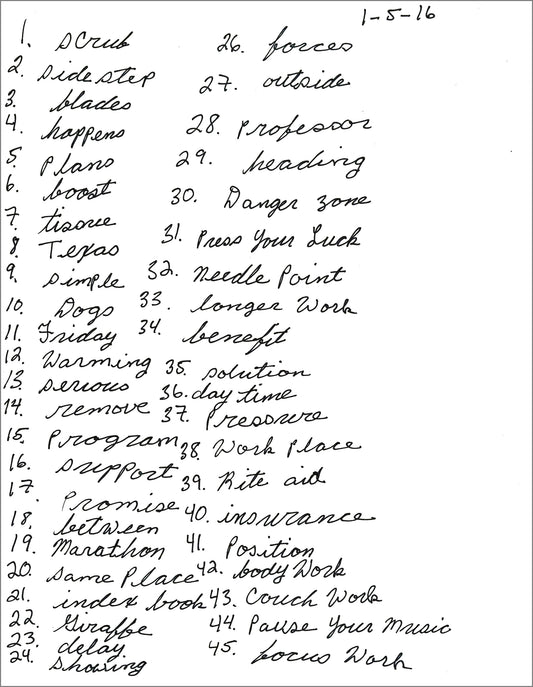 1-5-16
1. scrub
2. sidestep
3. blades
4. happens
5. Plans
6. boost
7. tissue
8. Texas
9. simple
10. Dogs
11. Friday
12. Warming
13. serious
14. remove
15. Program
16. support
17. Promise
18. between
19. Marathon
20. same Place
21. index book
22. Giraffe
23. delay
24. showing
26. forces
27. outside
28. Professor
29. heading
30. Danger zone
31. Press Your Luck
32. Needle Point
33. longer Work
34. benefit
35. solution
36. day time
37. Pressure
38. Work Place
39. Rite aid
40. insurance
41. Position
42. body Work
43. Couch Work
44. Pause Your Music
45. focus Work